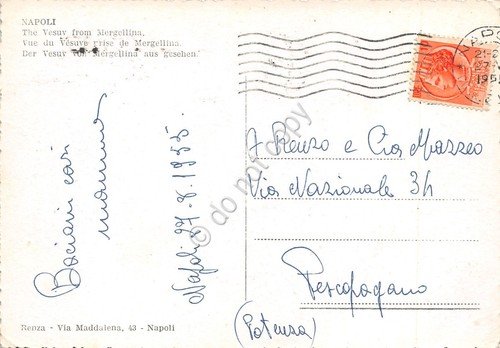 NAPOLI
The Vesuv from Mergellina.
Vue du Vésuve prise de Mergellina.
Der Vesuv von Mergellina aus gesehen.
Baciani cari
mamma
Napoli 27.8.1955.
A Renzo e Cia Mazzeo
Via Nazionale 34
Pescopagano
(Potenza)
Renza - Via Maddalena, 43 - Napoli
© do not copy